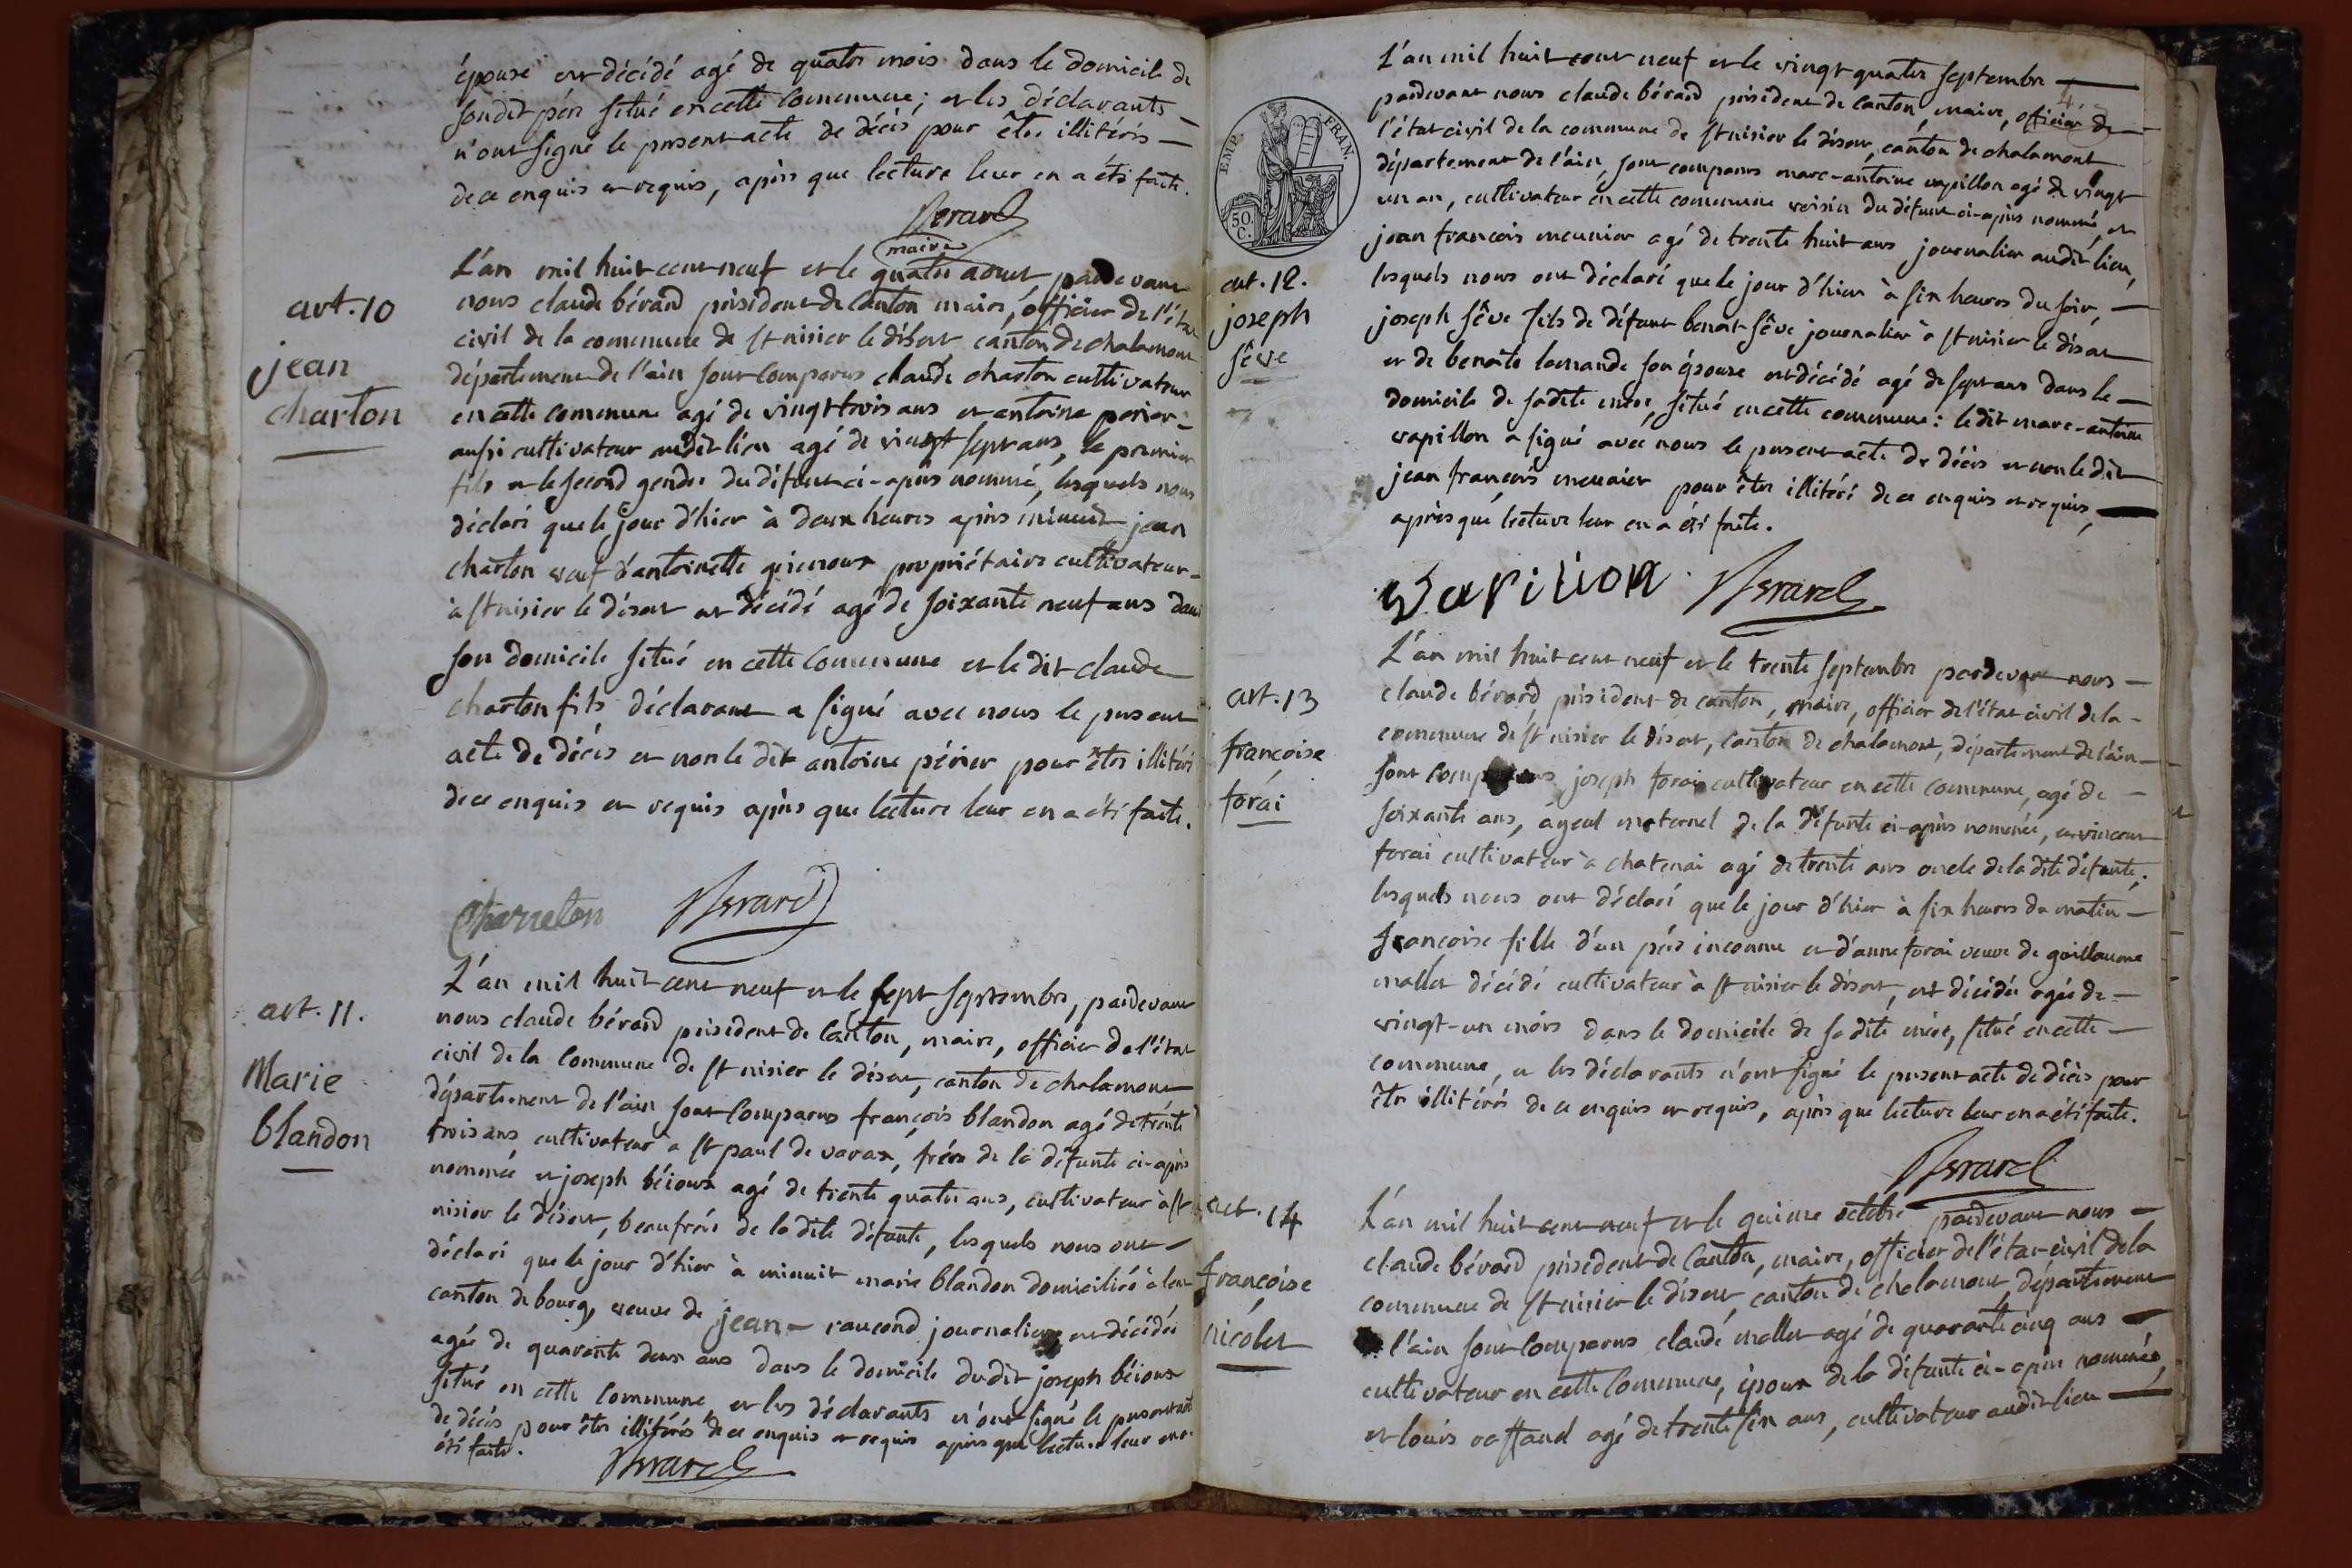 épouse est décédé agé de quatre mois dans le domicile de
sondit père situé en cette Commune; et les déclarants
n'ont signé le présent acte de décès pour être illitérés
de ce enquis et requis, après que lecture leur en a été faite.
Berard
maire
art. 10
jean
charton
L'an mil huit cent neuf et le quatre aout, pardevant
nous claude bérard président de Canton maire, officier de l'état
civil de la commune de st nisier le désert canton de chalamont
département de l'ain sont Comparus claude charton cultivateur
en cette commune agé de vingt trois ans et antoine perier
aussi cultivateur audit lieu agé de vingt sept ans, le premier
fils et le second gendre du défunt ci-après nommé, lesquels nous
déclaré que le jour d'hier à deux heures après minuit jean
charton veuf d'antoinette propriétaire cultivateur
à st nisier le désert est décédé agé de soixante neuf ans dans
son domicile situé en cette Commune et le dit claude
charton fils déclarant a signé avec nous le présent
acte de décès et non le dit antoine périer pour être illitéré
de ce enquis et requis après que lecture leur en a été faite.
Charreton Berard
art. 11.
Marie
blandon
L'an mil huit cent neuf et le sept septembre, pardevant
nous claude bérard président de Canton, maire, officier de l'état
civil de la Commune de st nisier le désert, canton de chalamont
département de l'ain sont Comparus françois blandon agé de trente
trois ans cultivateur à st paul de varax, frère de la défunte ci-après
nommée et joseph béioux agé de trente quatre ans, cultivateur à st
nisier le désert, beaufrère de la dite défunte, lesquels nous ont
déclaré que le jour d'hier à minuit marie blandon domiciliée à
canton de bourg, veuve de jean raucond journalier est décédée
agée de quarante deux ans dans le domicile dudit joseph béioux
situé en cette Commune et les déclarants n'ont signé le présent acte
de décès pour être illitérés de ce enquis et requis après que lecture leur en a
été faite.
Berard
EMP. FRAN.
50. C.
4.
art. 12.
joseph
sêve
L'an mil huit cent neuf et le vingt quatre septembre
pardevant nous claude bérard président de canton, maire, officier de
l'état civil de la commune de st nisier le désert, canton de chalamont
département de l'ain, sont comparus marc-antoine vapillon agé de vingt
un an, cultivateur en cette commune voisin du défunt ci-après nommé, et
jean francois meunier agé de trente huit ans journalier audit lieu,
lesquels nous ont déclaré que le jour d'hier à six heures du soir,
joseph sêve fils de défunt benoit sêve journalier à st nisier le désert
et de benoite lamande son épouse est décédé agé de sept ans dans le
domicile de sadite mère, situé en cette commune: le dit marc-antoine
vapillon a signé avec nous le présent acte de décès et non le dit
jean françois meunier pour être illitéré de ce enquis et requis,
après que lecture leur en a été faite.
Vapillon Berard
art. 13
françoise
forai
L'an mil huit cent neuf et le trente septembre pardevant nous
claude bérard président de canton, maire, officier de l'état civil de la
commune de st nisier le désert, canton de chalamont, département de l'ain
sont comparus joseph forai cultivateur en cette commune, agé de
soixante ans, ayeul maternel de la défunte ci-après nommée, et vincent
forai cultivateur à chatenai agé de trente ans oncle de la dite défunte;
lesquels nous ont déclaré que le jour d'hier à six heures du matin
françoise fille d'un père inconnu et d'anne forai veuve de guillaume
mallet décédé cultivateur à st nisier le désert, est décédée agée de
vingt-un mois dans le domicile de sa dite mère, situé en cette
commune, et les déclarants n'ont signé le présent acte de décès pour
être illitérés de ce enquis et requis, après que lecture leur en a été faite.
Berard
art. 14
françoise
nicolet
L'an mil huit cent neuf et le quinze octobre pardevant nous
claude bérard président de Canton, maire, officier de l'état civil de la
commune de st nisier le désert, canton de chalamont, département
l'ain sont Comparus claude mallet agé de quarante cinq ans
cultivateur en cette Commune, époux de la défunte ci-après nommée,
et louis raffaud agé de trente six ans, cultivateur audit lieu